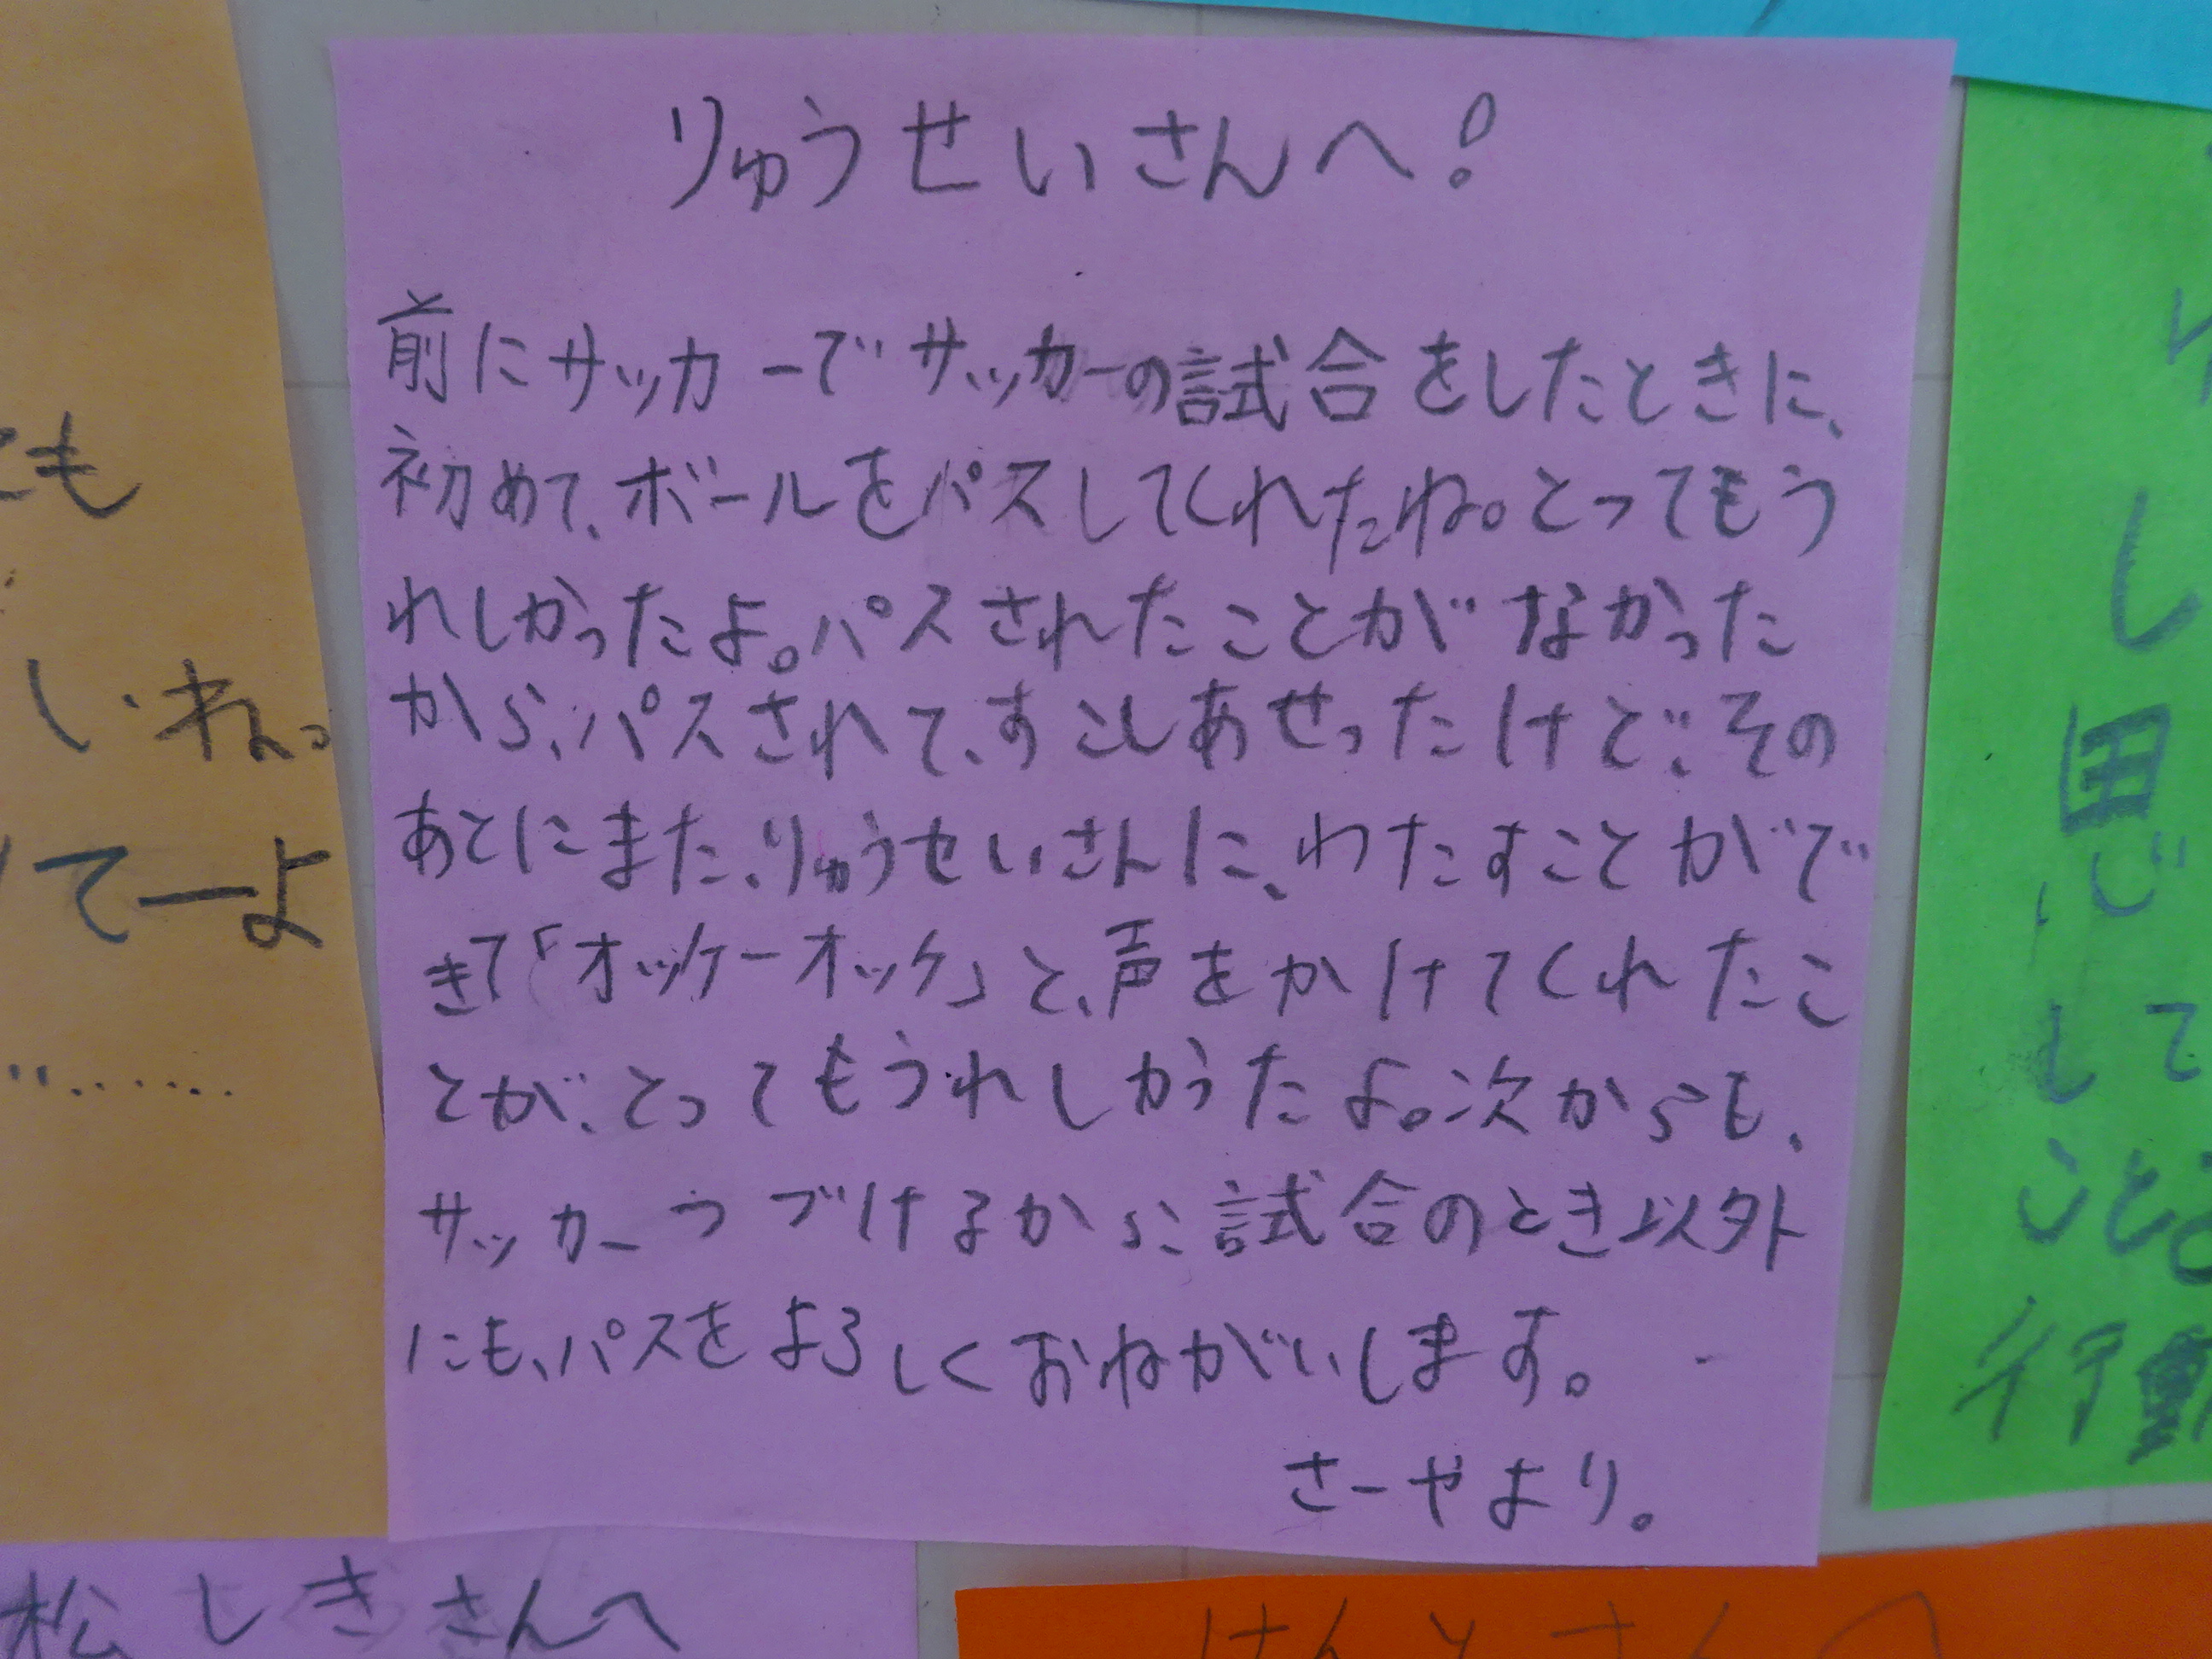 りゅうせいさんへ!
前にサッカーでサッカーの試合をしたときに、
初めて、ボールをパスしてくれたね。とってもう
れしかったよ。パスされたことがなかった
から、パスされて、すこしあせったけど、その
あとにまた、りゅうせいさんに、わたすことがで
きて「オッケーオッケ」と、声をかけてくれたこ
とが、とってもうれしかったよ。次からも、
サッカーつづけるから、試合のとき以外
にも、パスをよろしくおねがいします。
さーやより。
も
いね。
てーよ
し
して
こと
行動
松しきさんへ
けんとさんへ